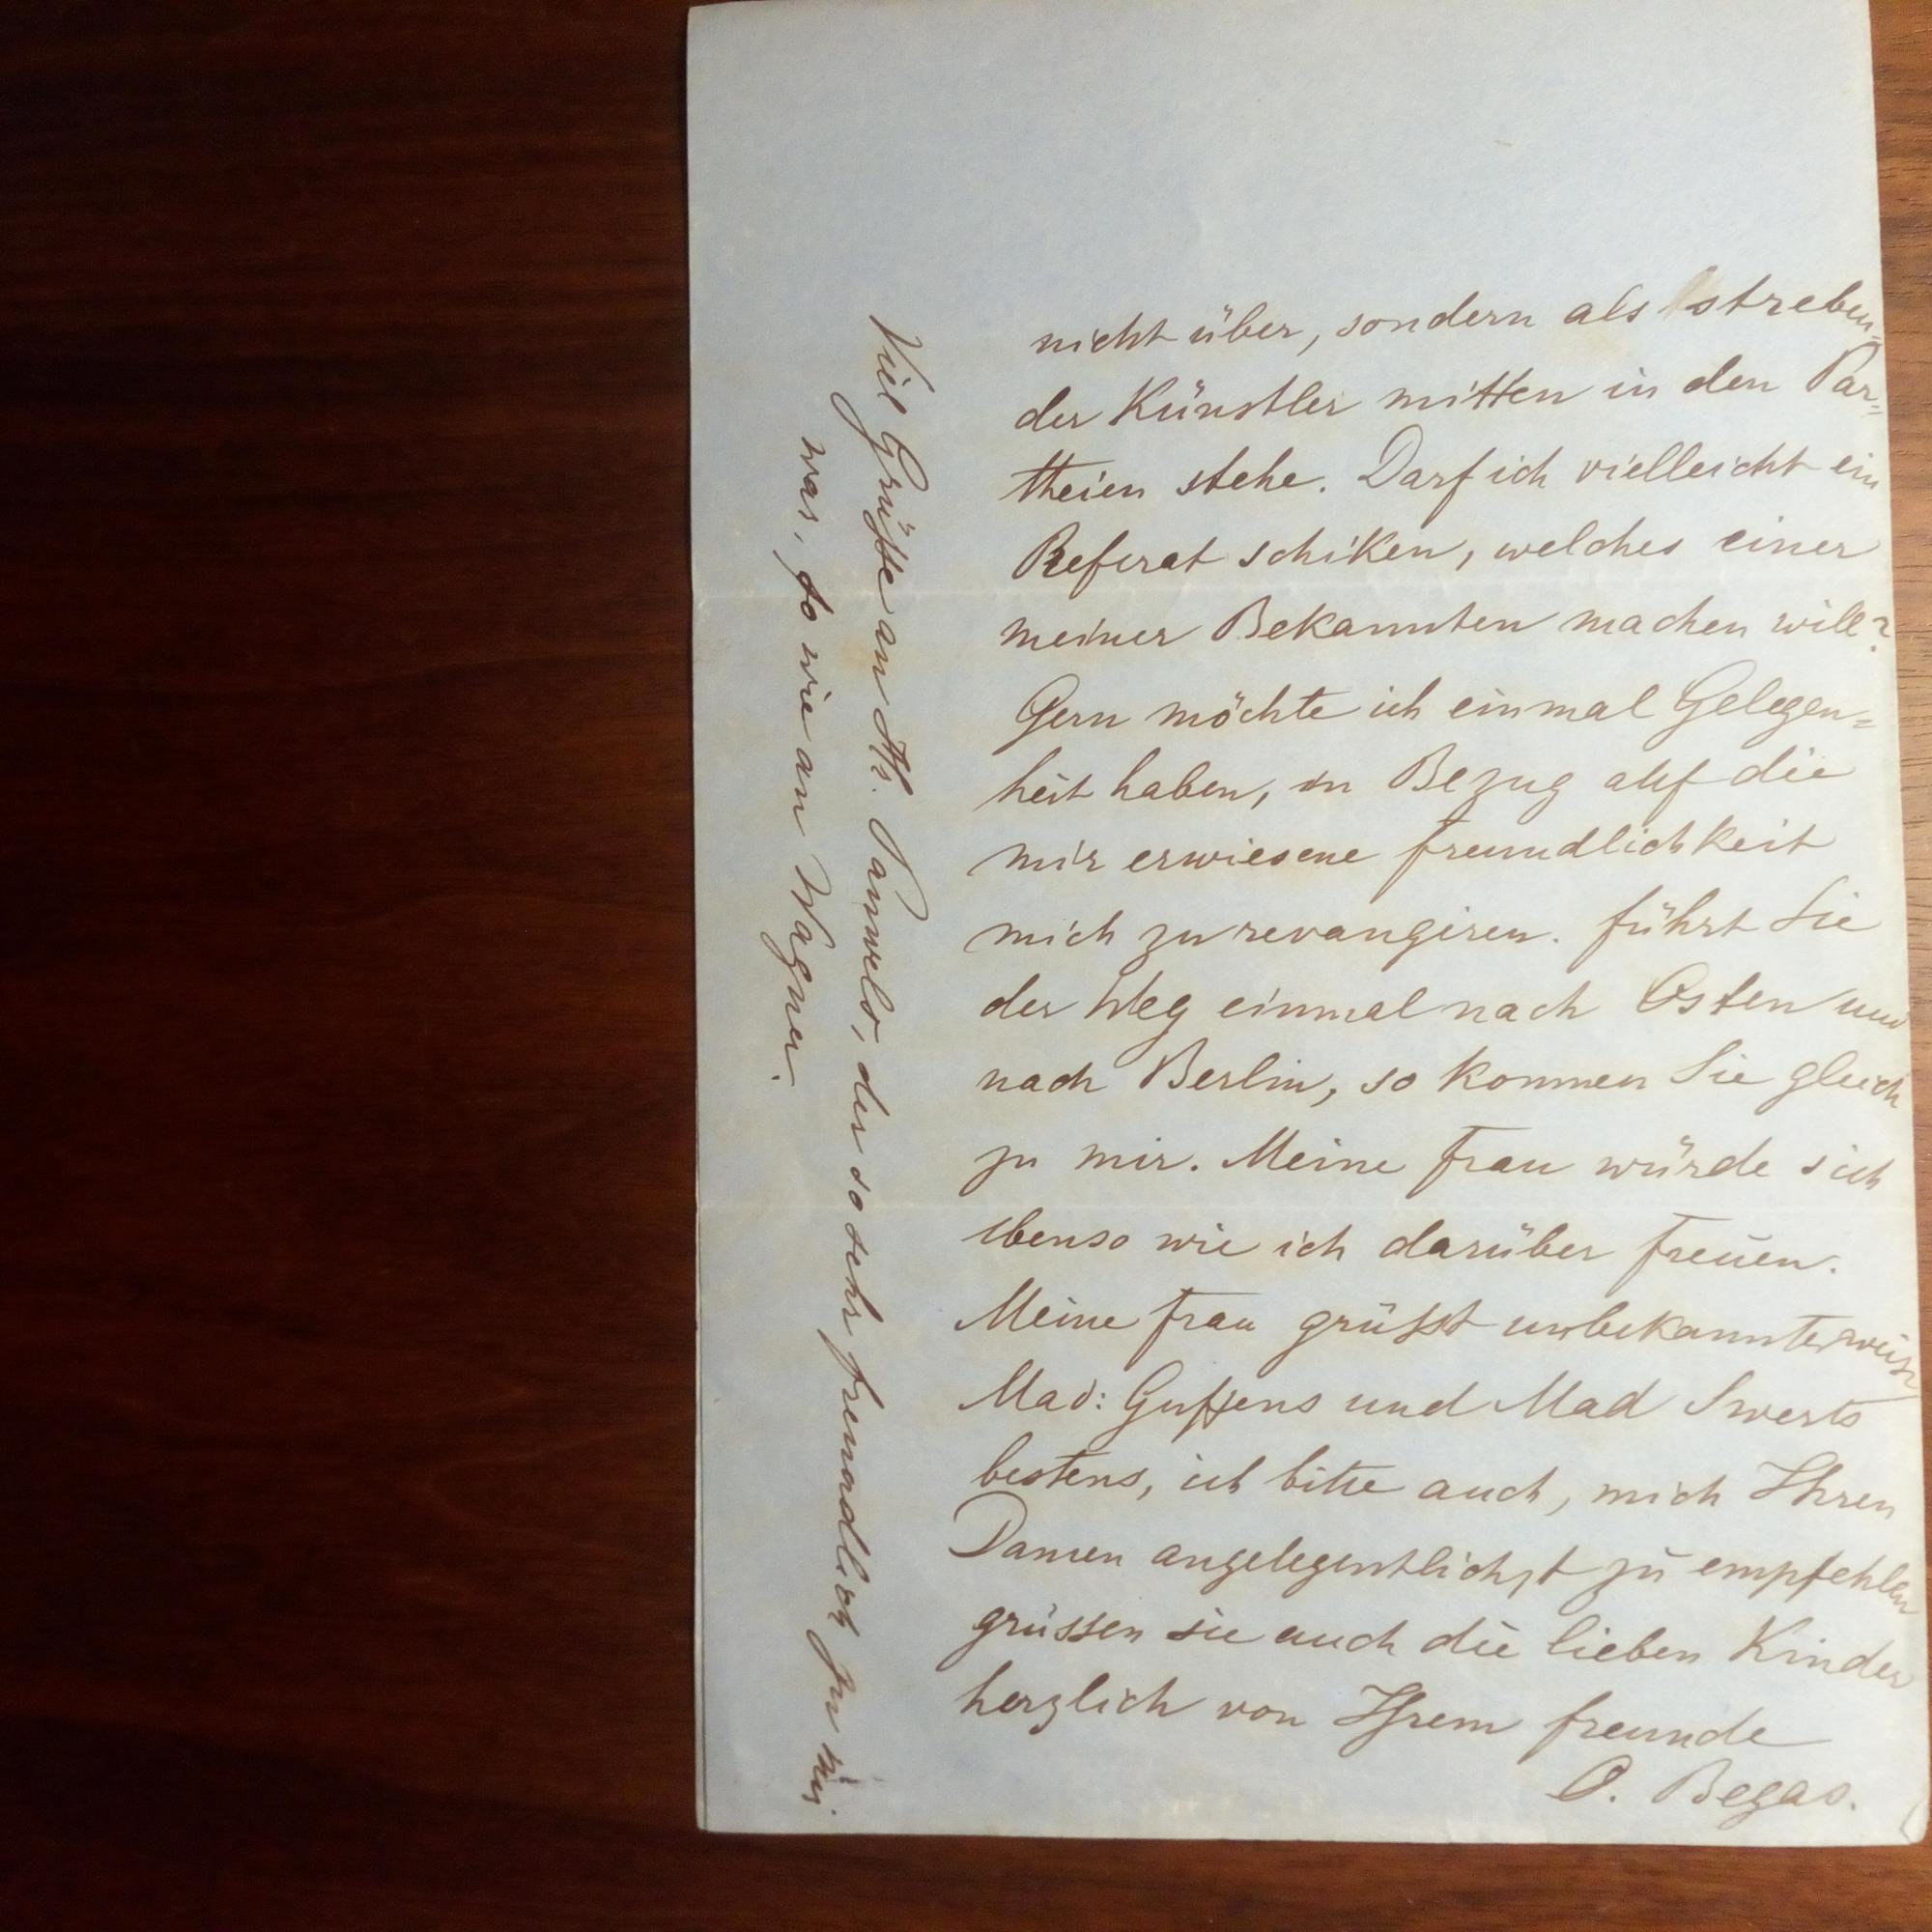 nicht über, sondern als streben=
der Künstler mitten in den Par=
theien stehe. Darf ich vielleicht ein
Referat schiken, welches einer
meiner Bekannten machen will?
Gern möchte ich einmal Gelegen=
heit haben, in Bezug auf die
mir erwiesene freundlichkeit
mich zu revangiren. führt Sie
der Weg einmal nach Osten und
nach Berlin, so kommen Sie gleich
zu mir. Meine frau würde sich
ebenso wie ich darüber freuen.
Meine frau grüsst unbekannterweise
Mad: Guffens und Mad Swerts
bestens, ich bitte auch, mich Ihren
Damen angelegentlichst zu empfehlen
grüssen sie auch die lieben Kinder
herzlich von Ihrem freunde
O. Begas.
Viel Grüsse an der so sehr freundlich zu mir
war, so wie an Wagner.